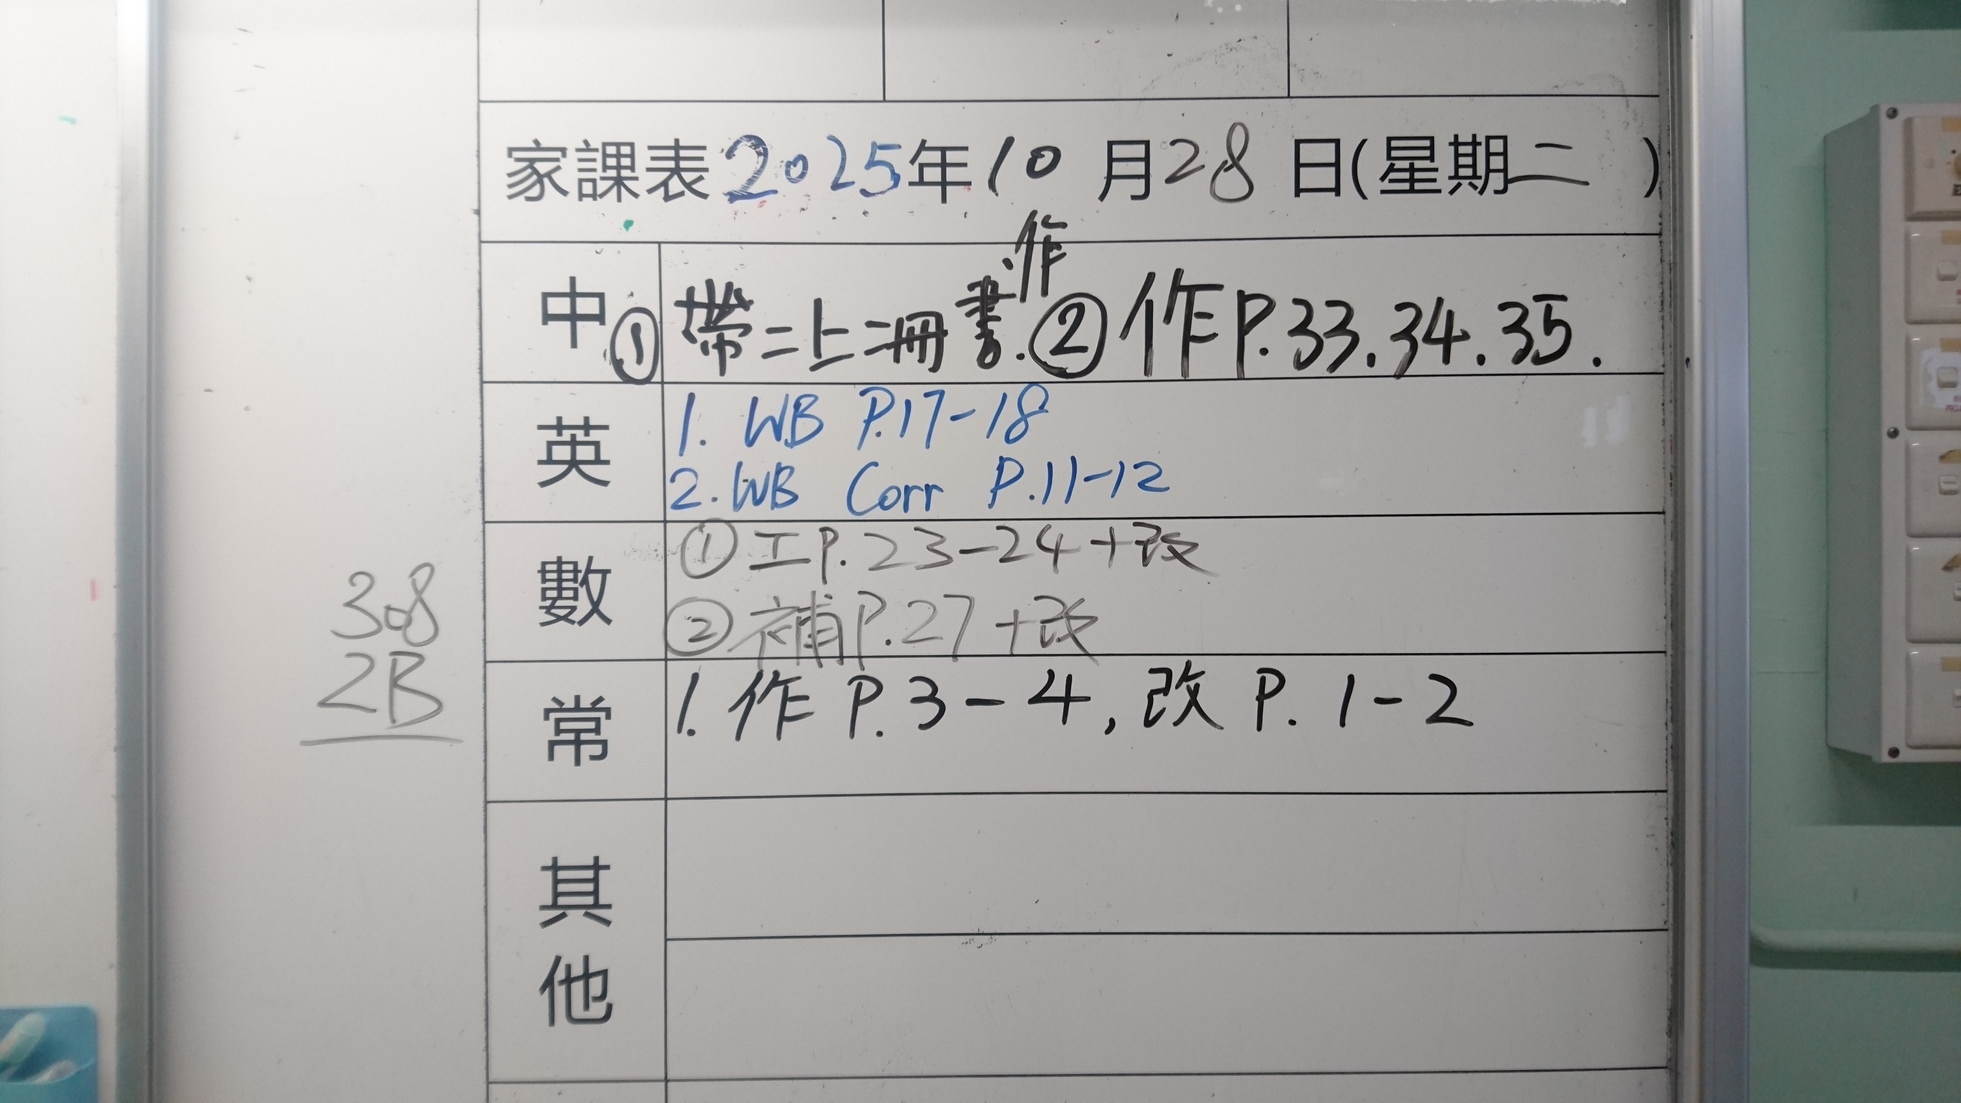 家課表2025年10月28日(星期二)
中 ①帶二上二冊書.作 ②作P.33.34.35.
英 1. WB P.17-18
2. WB Corr P.11-12
數 ①工P.23-24+改
②補P.27+改
常 1. 作P.3-4, 改P. 1-2
其他
308
2B